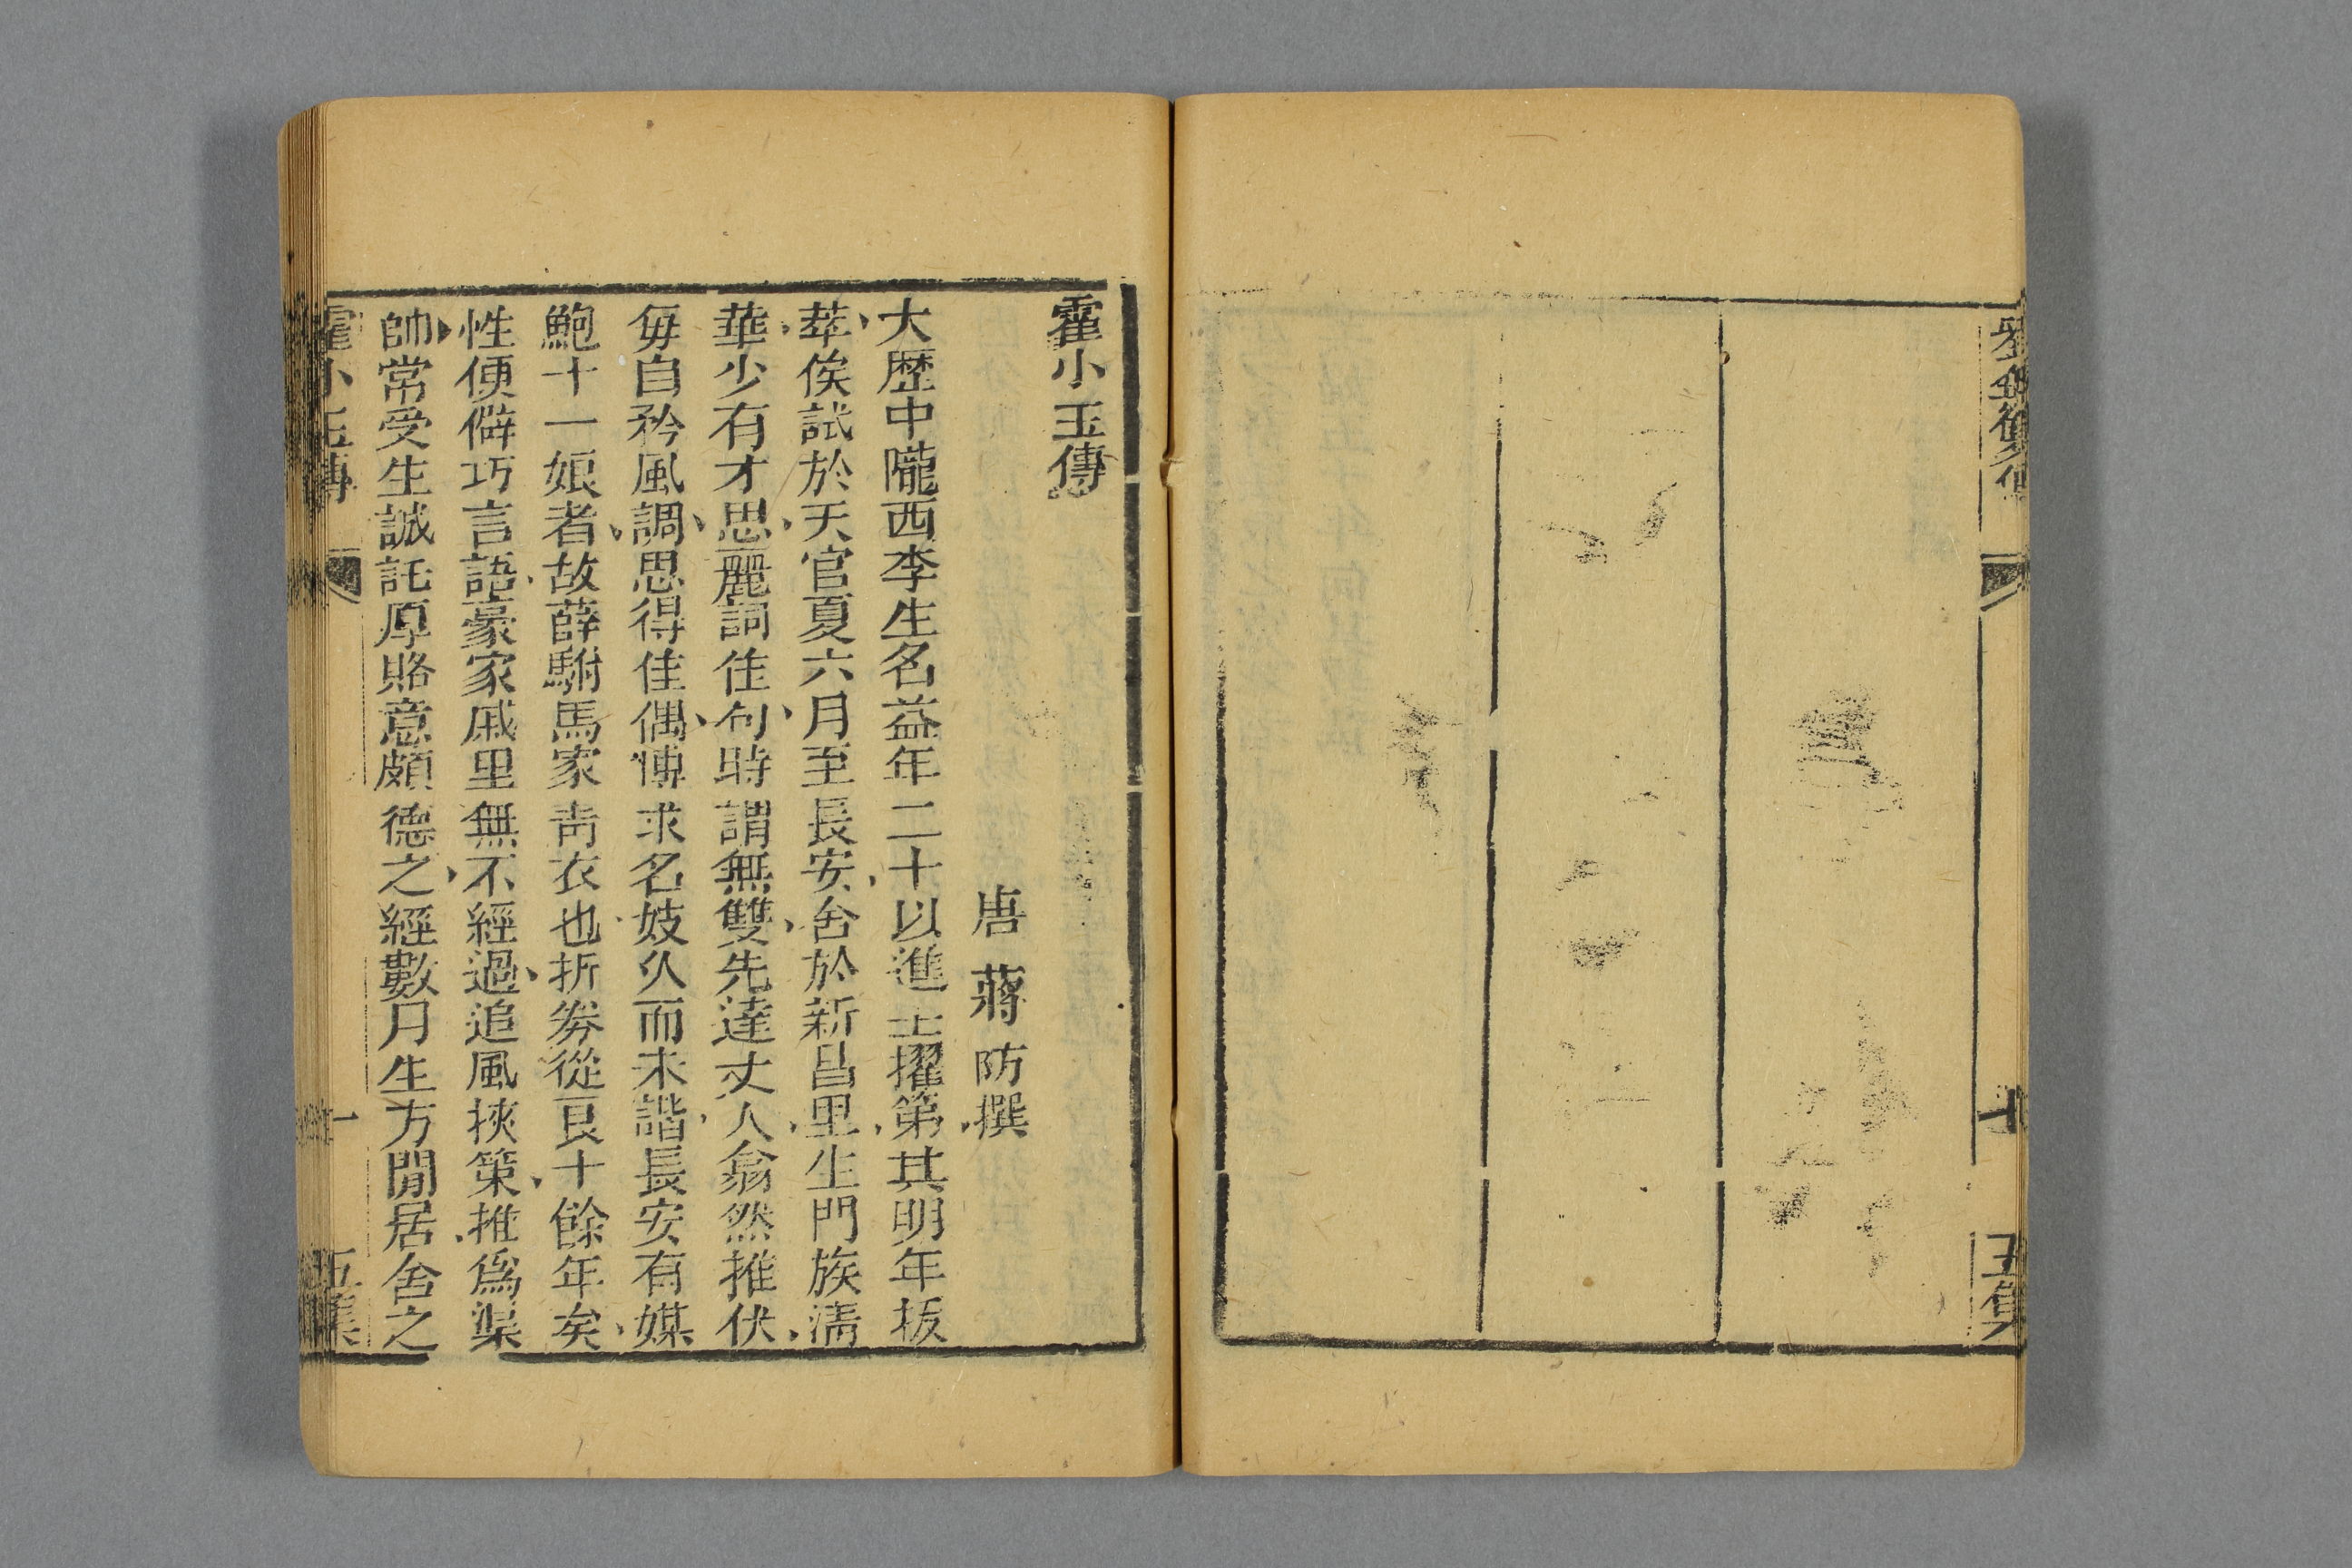 五集
霍小玉傳
唐 蔣防撰
大歷中隴西李生名益年二十以進士擢第其明年拔
萃俟試於天官夏六月至長安舍於新昌里生門族淸
華少有才思麗詞佳句時謂無雙先達丈人翕然推伏
每自矜風調思得佳偶博求名妓久而未諧長安有媒
鮑十一娘者故薛駙馬家靑衣也折券從良十餘年矣
性便僻巧言語豪家戚里無不經過追風挾策推爲渠
帥常受生誠託厚賂意頗德之經數月生方閒居舍之
霍小玉傳 一 五集